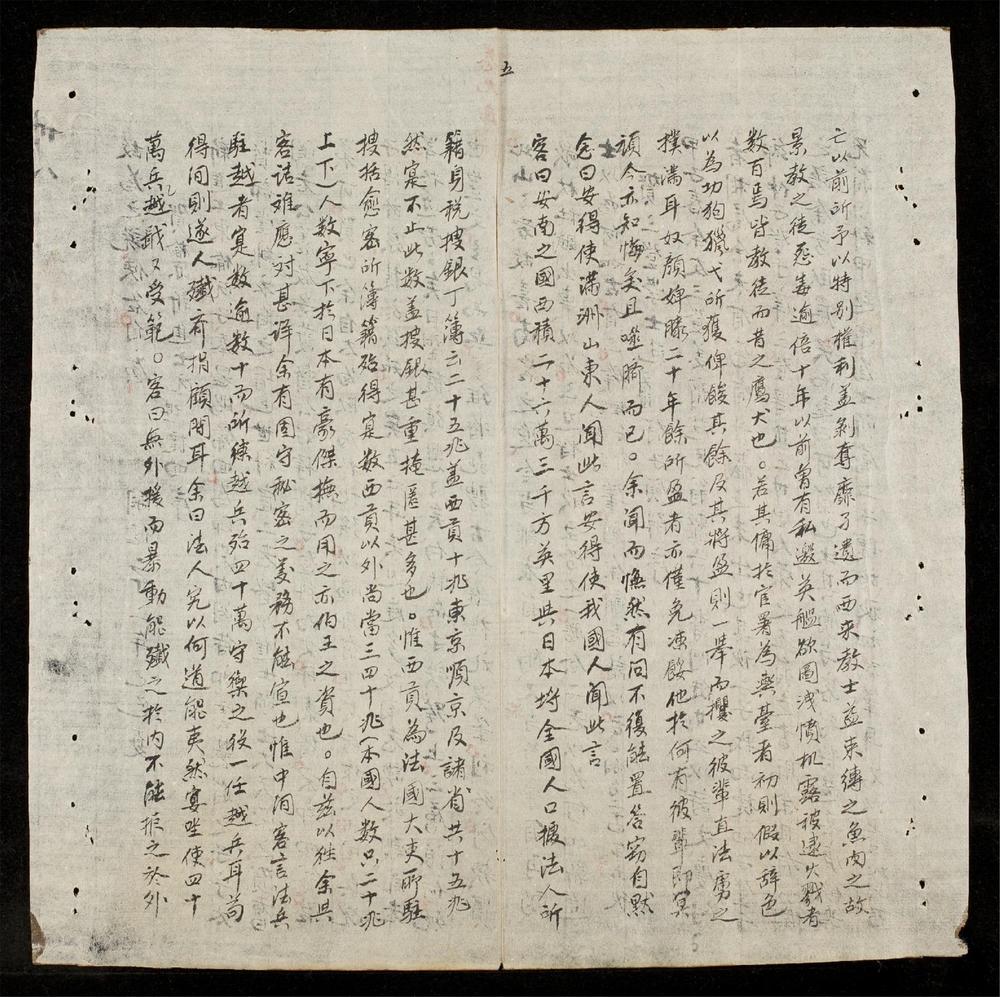 五
亡以前所予以特別權利盖剝奪靡孑遺而西来教士益束縛之魚肉之故
景教之徒怨毒逾倍十年以前曾有私邀英艦欲圖洩憤机露被逮火戮者
数百焉皆教徒而昔之鹰犬也。若其傭於官署為輿薹者初則假以辞色
以為功狗獵弋所獲俾餕其餘及其将盈則一舉而攫之彼輩直法虏之
撲滿耳奴顏婢膝二十年餘所盈者亦僅免凍餒他於何有彼輩即冥
頑今亦知悔矣且噬臍而已。余聞而憮然有间不復能置答窃自默
念曰安得使满洲山東人聞此言安得使我國人聞此言
客曰安南之國西積二十六萬三千方英里與日本埒全國人口據法人所
籍身税搜銀丁簿云二十五兆盖西貢十兆東京順京及諸省共十五兆
然寔不止此数盖搜银甚重撞匿甚多也。惟西貢為法國大吏所駐
搜括愈密所簿籍殆得寔数西貢以外尚當三四十兆（本國人数只二十兆
上下）人数寧下於日本有豪傑撫而用之亦伯王之資也。自兹以往余與
客诘难應对甚詳余有固守秘密之義務不能宣也惟中间客言法兵
駐越者寔数逾数十而所練越兵殆四十萬守禦之役一任越兵耳苟
得间則遂人殲齐捐顧間耳余曰法人究以何道能夷然宴坐使四十
萬兵越戢又受範。客曰無外援而暴動能殲之於内不能拒之於外
5